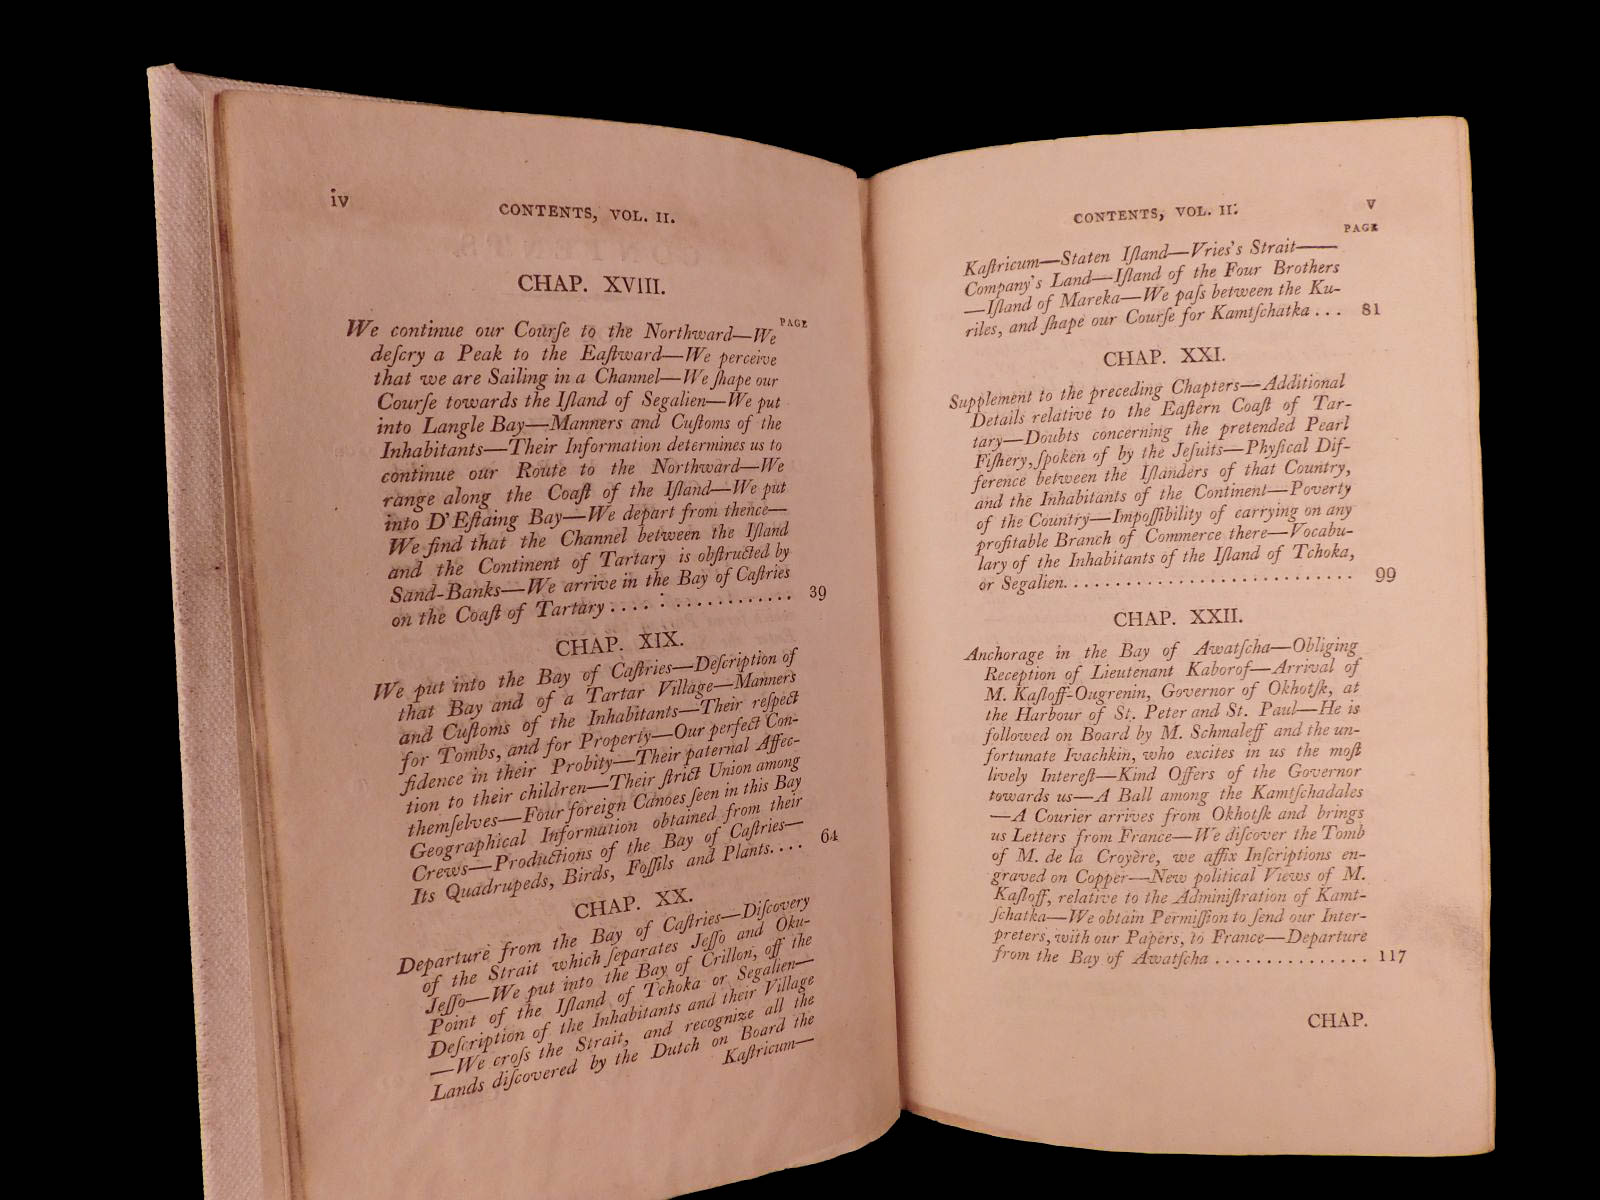 iv
CONTENTS, VOL. II.
CHAP. XVIII.
PAGE
We continue our Courſe to the Northward—We
deſcry a Peak to the Eaſtward—We perceive
that we are Sailing in a Channel—We ſhape our
Courſe towards the Iſland of Segalien—We put
into Langle Bay—Manners and Cuſtoms of the
Inhabitants—Their Information determines us to
continue our Route to the Northward—We
range along the Coaſt of the Iſland—We put
into D'Eſtaing Bay—We depart from thence—
We find that the Channel between the Iſland
and the Continent of Tartary is obſtructed by
Sand-Banks—We arrive in the Bay of Caſtries
on the Coaſt of Tartary . . . . . . . . . . . . . . . . . 39
CHAP. XIX.
We put into the Bay of Caſtries—Deſcription of
that Bay and of a Tartar Village—Manners
and Cuſtoms of the Inhabitants—Their reſpect
for Tombs, and for Property—Our perfect Con-
fidence in their Probity—Their paternal Affec-
tion to their children—Their ſtrict Union among
themſelves—Four foreign Canoes ſeen in this Bay
Geographical Information obtained from their
Crews—Productions of the Bay of Caſtries—
Its Quadrupeds, Birds, Foſſils and Plants. . . . 64
CHAP. XX.
Departure from the Bay of Caſtries—Diſcovery
of the Strait which ſeparates Jeſſo and Oku-
Jeſſo—We put into the Bay of Crillon, off the
Point of the Iſland of Tchoka or Segalien—
Deſcription of the Inhabitants and their Village
—We croſs the Strait, and recognize all the
Lands diſcovered by the Dutch on Board the
Kaſtricum—
CONTENTS, VOL. II.
v
PAGE
Kaſtricum—Staten Iſland—Vries's Strait——
Company's Land—Iſland of the Four Brothers
—Iſland of Mareka—We paſs between the Ku-
riles, and ſhape our Courſe for Kamtſchatka . . . 81
CHAP. XXI.
Supplement to the preceding Chapters—Additional
Details relative to the Eaſtern Coaſt of Tar-
tary—Doubts concerning the pretended Pearl
Fiſhery, ſpoken of by the Jeſuits—Phyſical Dif-
ference between the Iſlanders of that Country,
and the Inhabitants of the Continent—Poverty
of the Country—Impoſſibility of carrying on any
profitable Branch of Commerce there—Vocabu-
lary of the Inhabitants of the Iſland of Tchoka,
or Segalien. . . . . . . . . . . . . . . . . . . . . . . . . . . 99
CHAP. XXII.
Anchorage in the Bay of Awatſcha—Obliging
Reception of Lieutenant Kaborof—Arrival of
M. Kaſloff-Ougrenin, Governor of Okhotſk, at
the Harbour of St. Peter and St. Paul—He is
followed on Board by M. Schmaleff and the un-
fortunate Ivachkin, who excites in us the moſt
lively Intereſt—Kind Offers of the Governor
towards us—A Ball among the Kamtſchadales
—A Courier arrives from Okhotſk and brings
us Letters from France—We diſcover the Tomb
of M. de la Croyère, we affix Inſcriptions en-
graved on Copper—New political Views of M.
Kaſloff, relative to the Adminiſtration of Kamt-
ſchatka—We obtain Permiſſion to ſend our Inter-
preters, with our Papers, to France—Departure
from the Bay of Awatſcha . . . . . . . . . . . . . . . 117
CHAP.